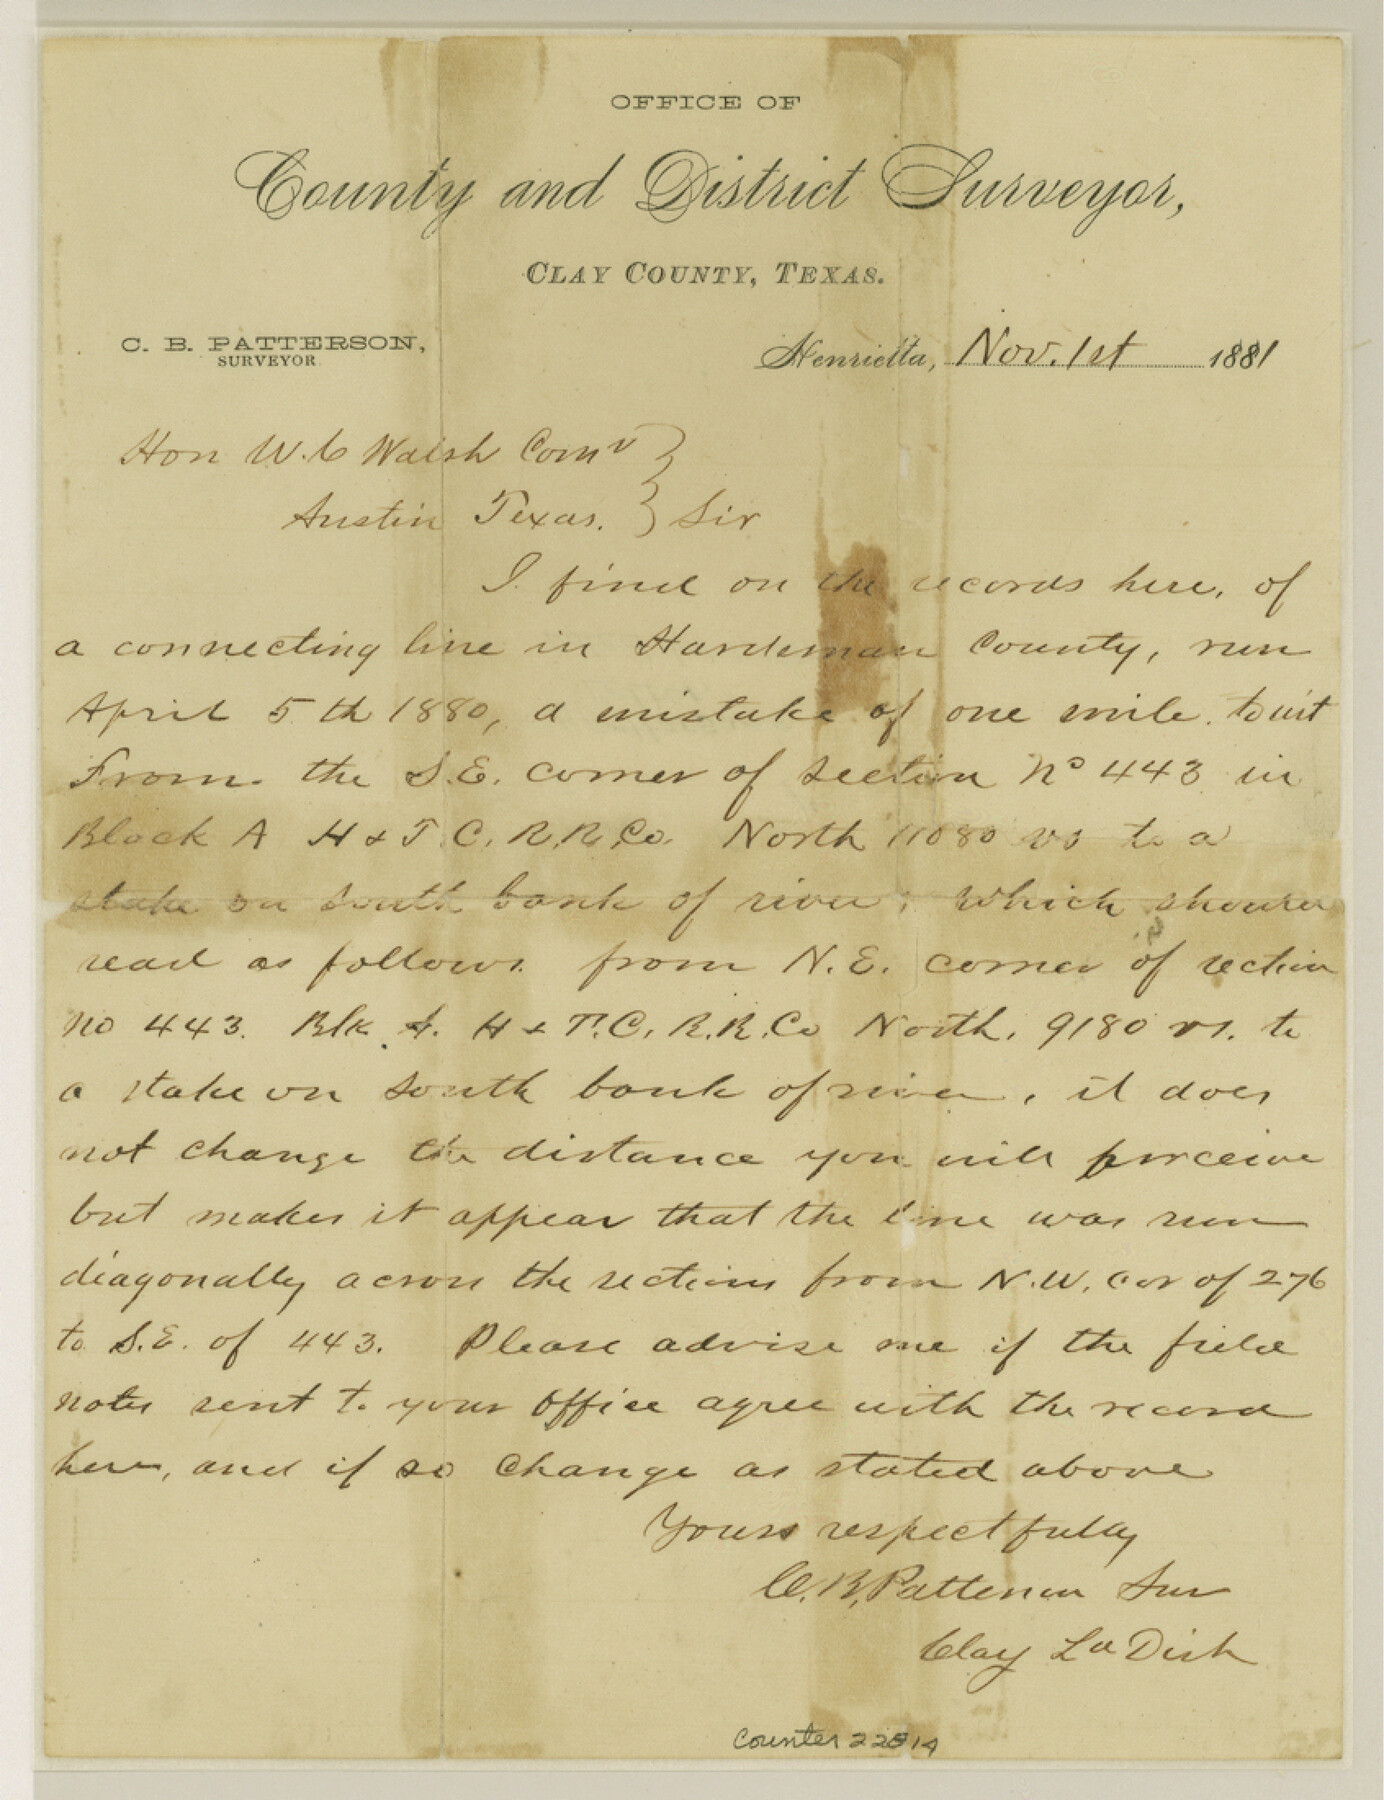 OFFICE OF
County and District Surveyor,
CLAY COUNTY, TEXAS.
C. B. PATTERSON,
SURVEYOR
Henrietta, Nov. 1st 1881
Hon W. C Walsh Comr
Austin Texas. } Sir
I find on the records here, of
a connecting line in Hardeman County, run
April 5th 1880, a mistake of one mile. towit
From the S.E. corner of section No 443 in
Block A H & T. C. R.R. Co. North 11080 vs to a
stake on south bank of river; which should
read as follows. from N.E. corner of section
No 443. Blk A. H & T. C. R.R. Co North. 9180 vs. to
a stake on south bank of river, it does
not change the distance you will perceive
but makes it appear that the line was run
diagonally across the sections from N.W. cor of 276
to S.E. of 443. Please advise me if the field
notes sent to your office agree with the record
here, and if so change as stated above
Yours respectfully
C. B. Patterson Sur
Clay Ld Dist
Counter 22814